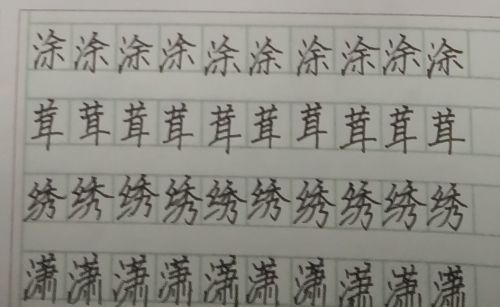 涂涂涂涂涂涂涂涂涂涂
茸茸茸茸茸茸茸茸茸茸
绣绣绣绣绣绣绣绣绣绣
潇潇潇潇潇潇潇潇潇潇